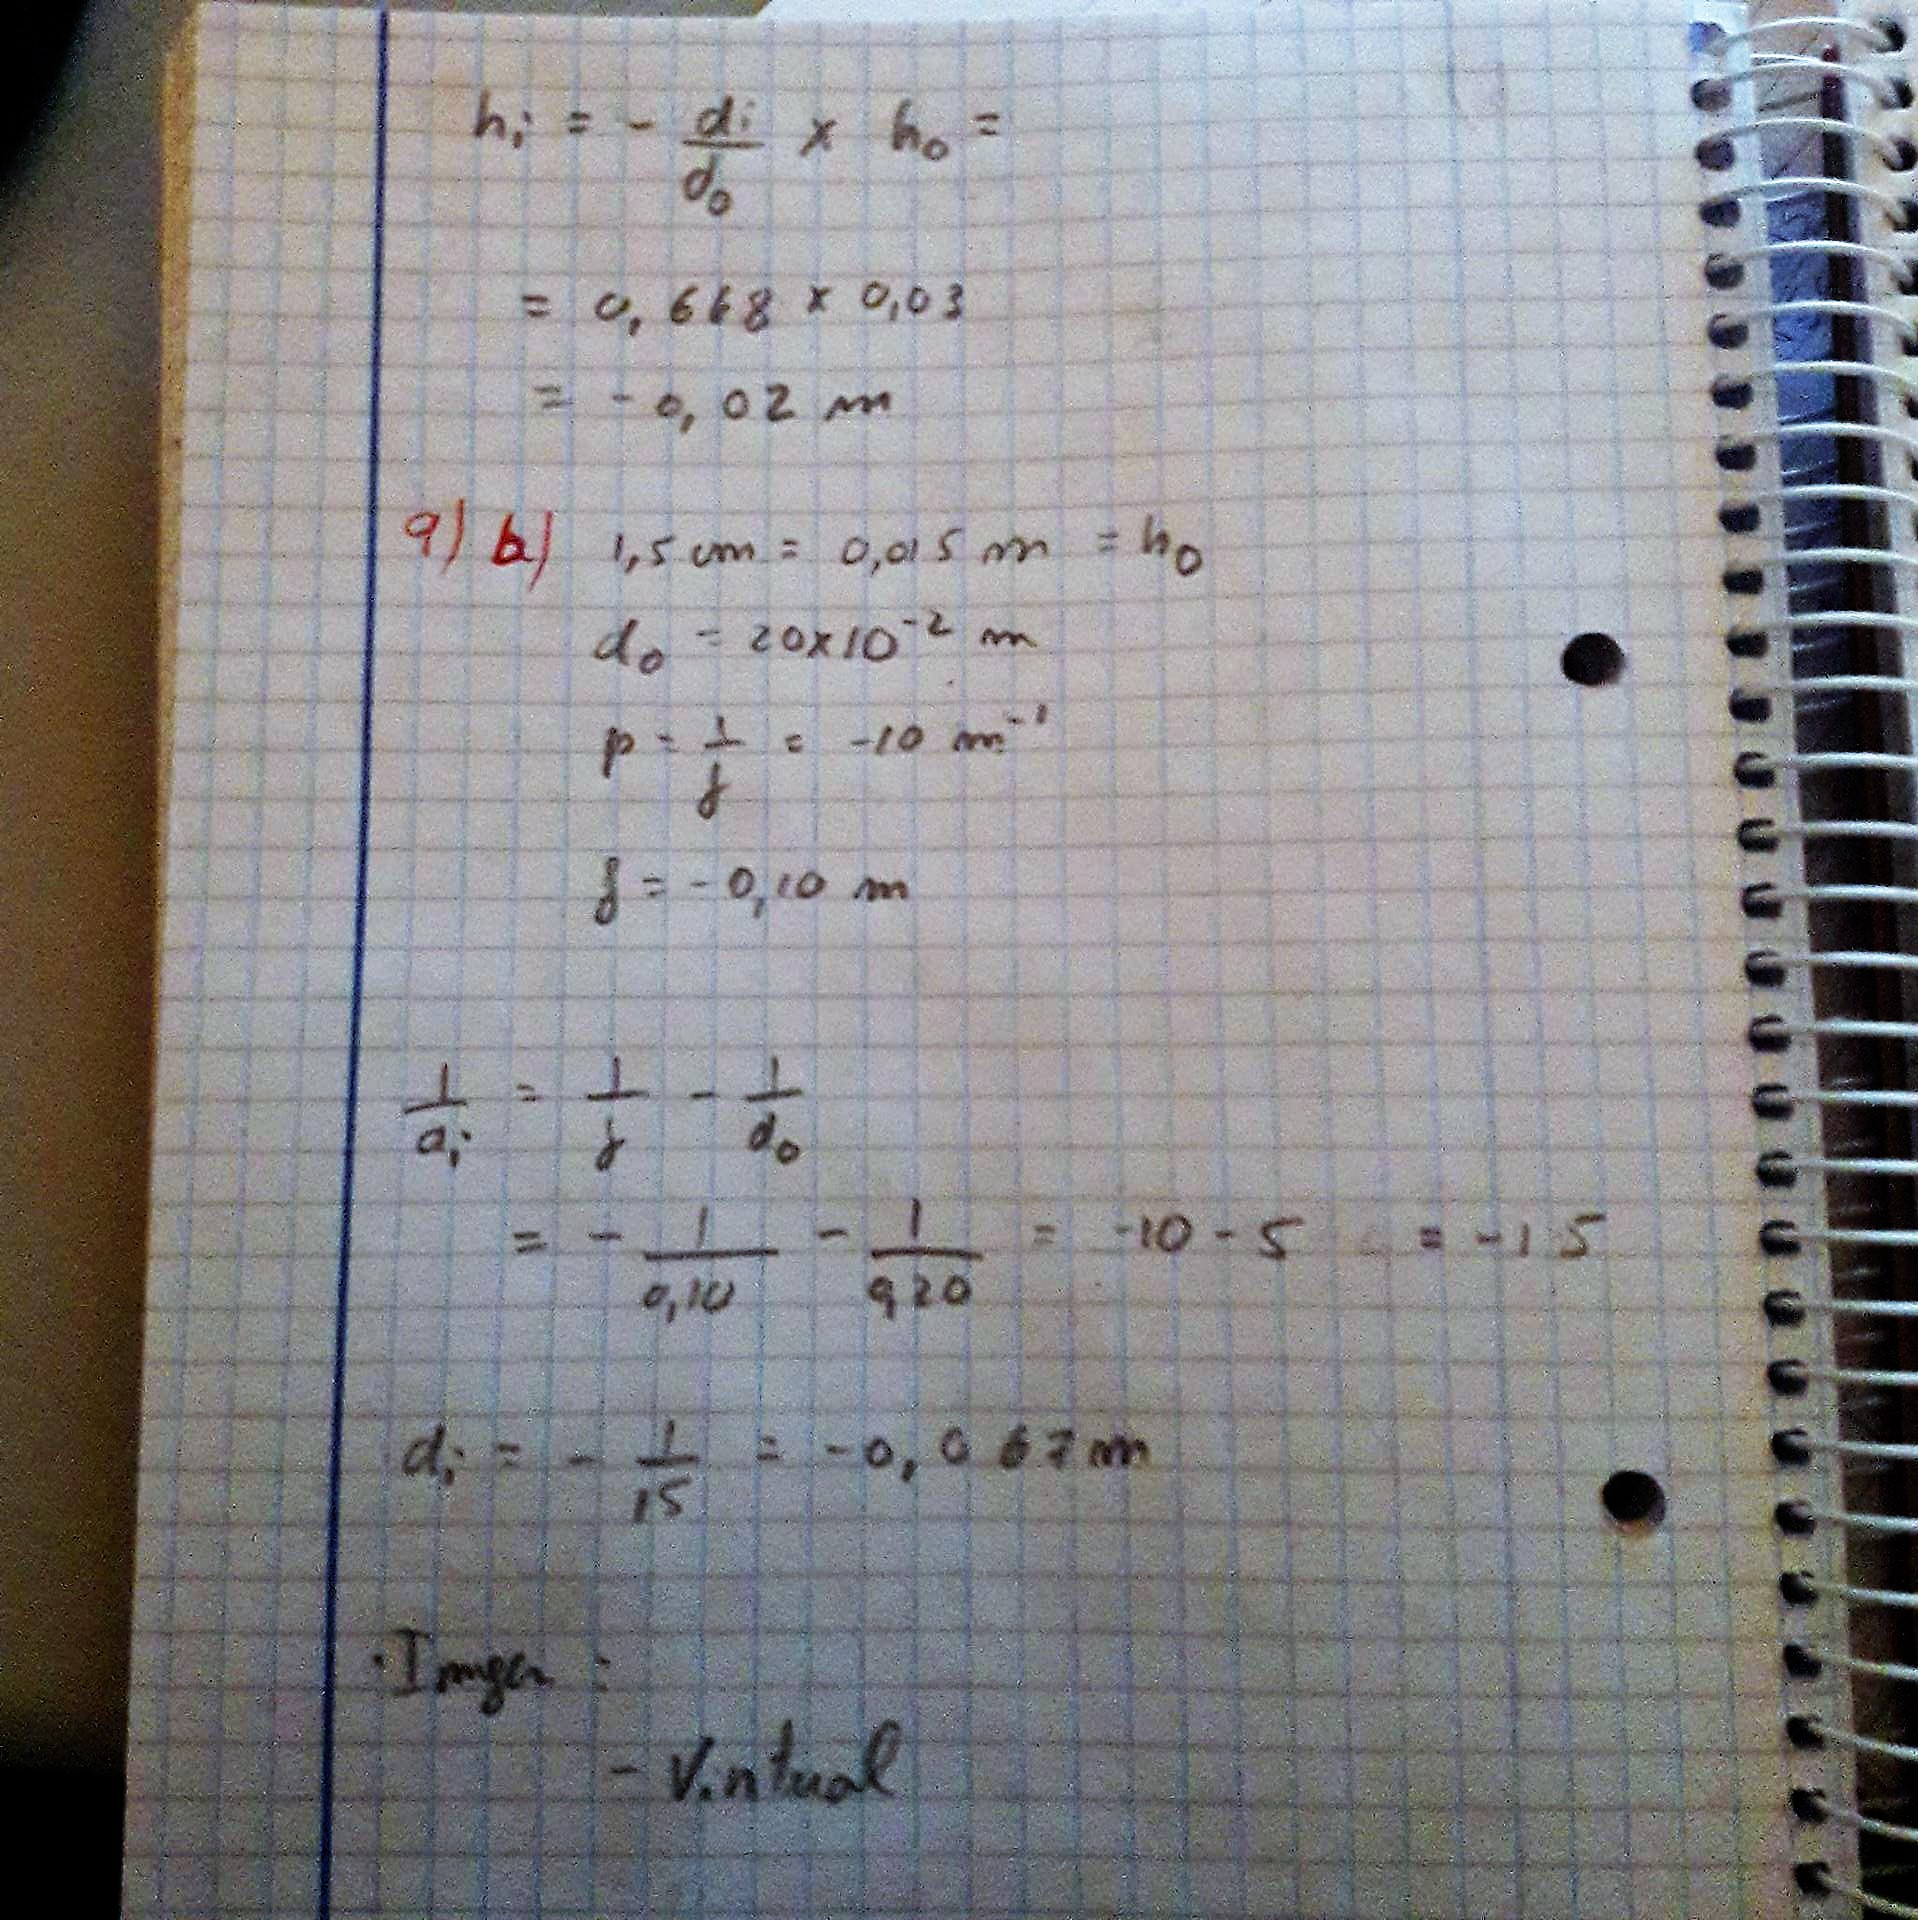 hi = - di/do x ho =
= 0,668 x 0,03
= -0,02 m
9) b) 1,5 cm = 0,015 m = ho
do = 20x10⁻² m
p = 1/f = -10 m⁻¹
f = -0,10 m
1/di = 1/f - 1/do
= - 1/0,10 - 1/0,20 = -10 - 5 = -15
di = - 1/15 = -0,067 m
· Imgen :
- Virtual